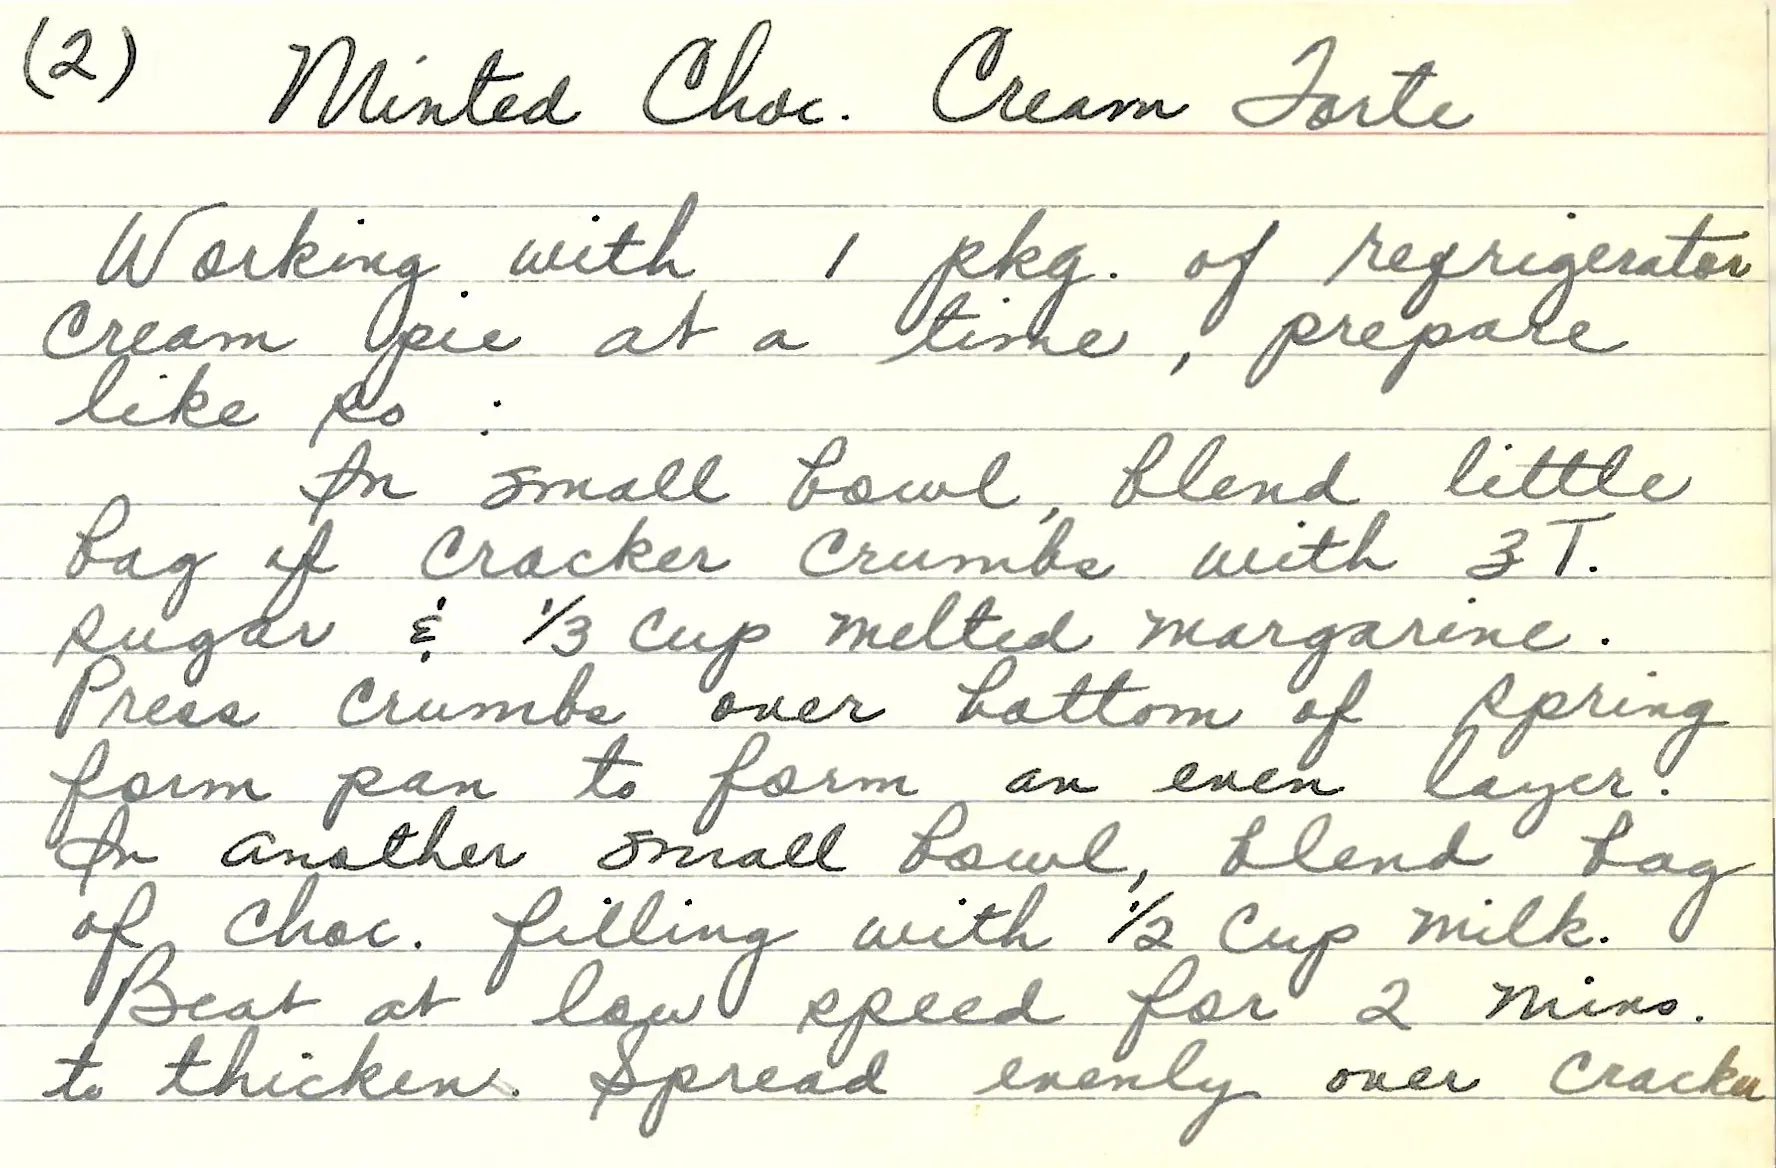 (2) Minted Choc. Cream Torte
Working with 1 pkg. of refrigerator
cream pie at a time, prepare
like so :
In small bowl, blend little
bag of cracker crumbs with 3 T.
sugar & 1/3 cup melted margarine.
Press crumbs over bottom of spring
form pan to form an even layer.
In another small bowl, blend bag
of choc. filling with 1/2 cup milk.
Beat at low speed for 2 mins.
to thicken. Spread evenly over cracker